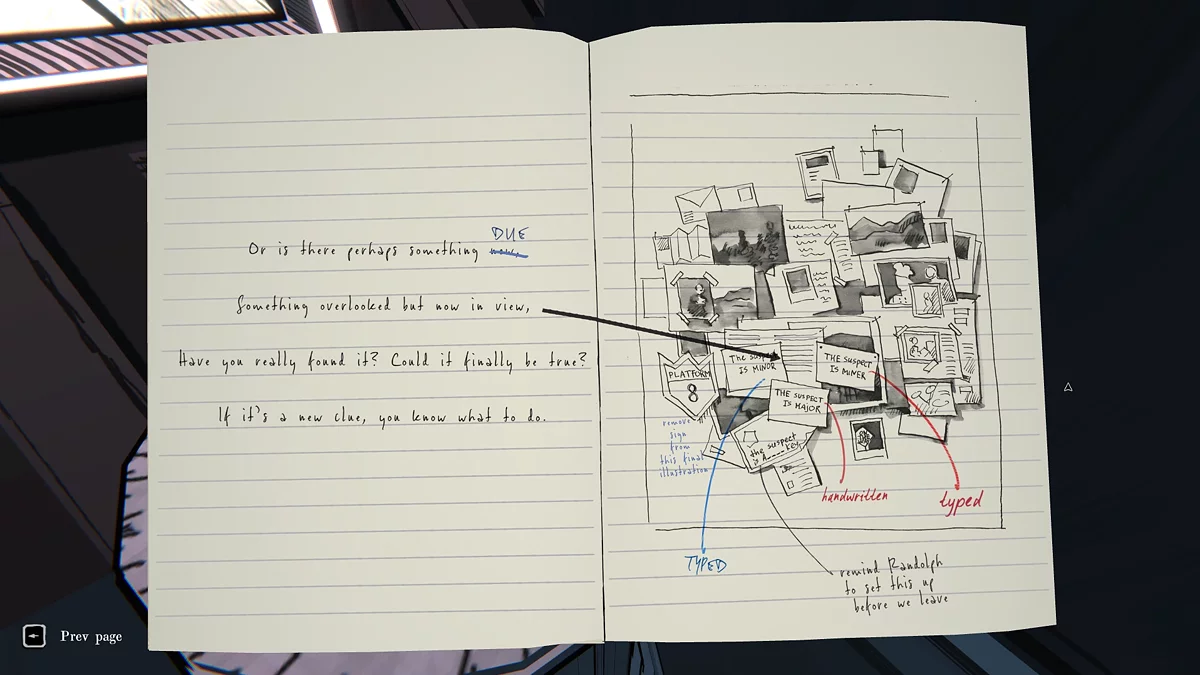 DUE
Or is there perhaps something
Something overlooked but now in view,
Have you really found it? Could it finally be true?
If it's a new clue, you know what to do.
The suspect
IS MINOR
THE SUSPECT
IS MINER
PLATFORM
8
THE SUSPECT
IS MAJOR
the suspect
is a key
remove
sign
from
this final
illustration
handwritten
typed
TYPED
remind Randolph
to set this up
before we leave
Prev page